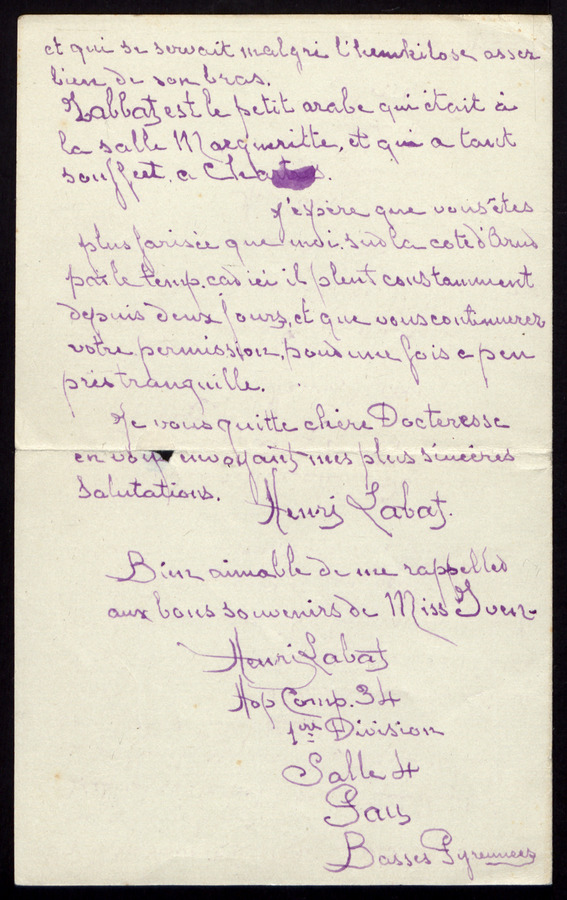 et qui se servait malgri l'hemkilose assez
bien de son bras.
Labbat est le petit arabe qui était à
la salle Margueritte, et qui a tant
souffert, a
j'espère que vous êtes
plus farisée que moi. sur la cote d'
par le temp. car ici il pleut constamment
depuis deux jours, et que vous continuerez
votre permission, pour une fois a peu
près tranquille.
Je vous quitte chère Docteresse
en vous envoyant mes plus sincères
Salutations. Henri Labat.
Bien aimable de me rappeller
aux bons souvenirs de Miss Yven-
Henri Labat
Hop Comp. 34
1ere Division
Salle 4
Pau
Basses Pyrennees